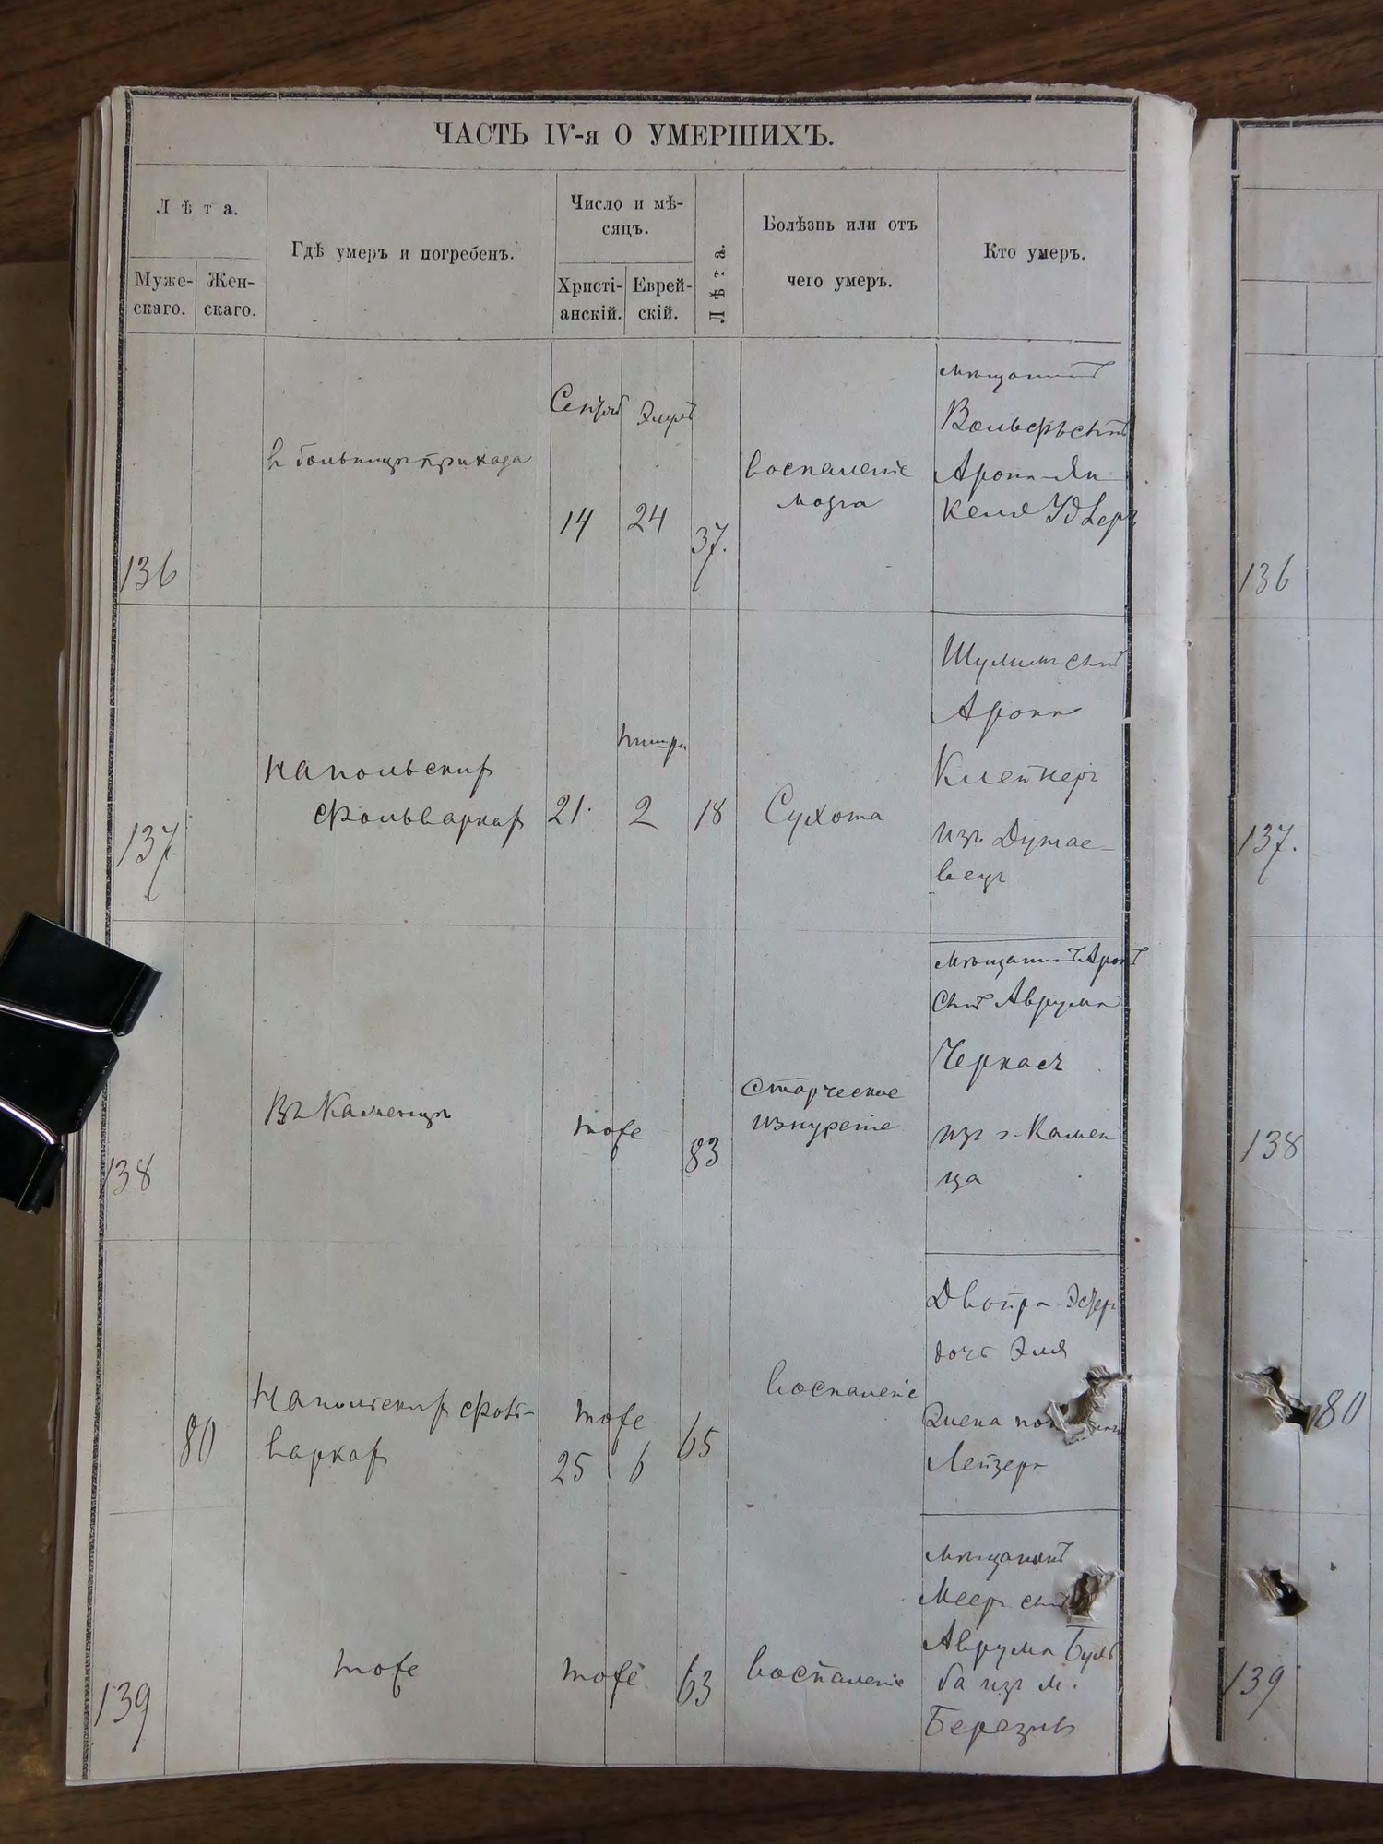 ЧАСТЬ IV-я О УМЕРШИХЪ.
Лѣта.
Муже-
скаго.
Жен-
скаго.
Гдѣ умеръ и погребенъ.
Число и мѣ-
сяцъ.
Христі-
анскій.
Еврей-
скій.
Лѣта.
Болѣзнь или отъ
чего умеръ.
Кто умеръ.
136
в больницѣ приказа
14
24
37.
воспаленіе
мозга
мѣщанинъ
Вольфъ сынъ
Арона-Ян
келя
136
137
на польскихъ
фольваркахъ
21.
Тишри
2
18
Сухота
сынъ
Арона
Клейнеръ
изъ Дунае-
вецъ
137.
138
Въ Каменцѣ
тоже
83
старческое
изнуреніе
мѣщанинъ Аронъ
сынъ Аврума
Черкасъ
изъ г. Камен
ца
138
80
на польскихъ фоль-
варкахъ
тоже
25
6
65
воспаленіе
Двойра Эстеръ
дочь Эля
Жена
Лейзера
80
139
тоже
тоже
63
воспаленіе
мѣщанинъ
Мееръ сынъ
Аврума Буль
ба изъ м.
Березнѣ
139